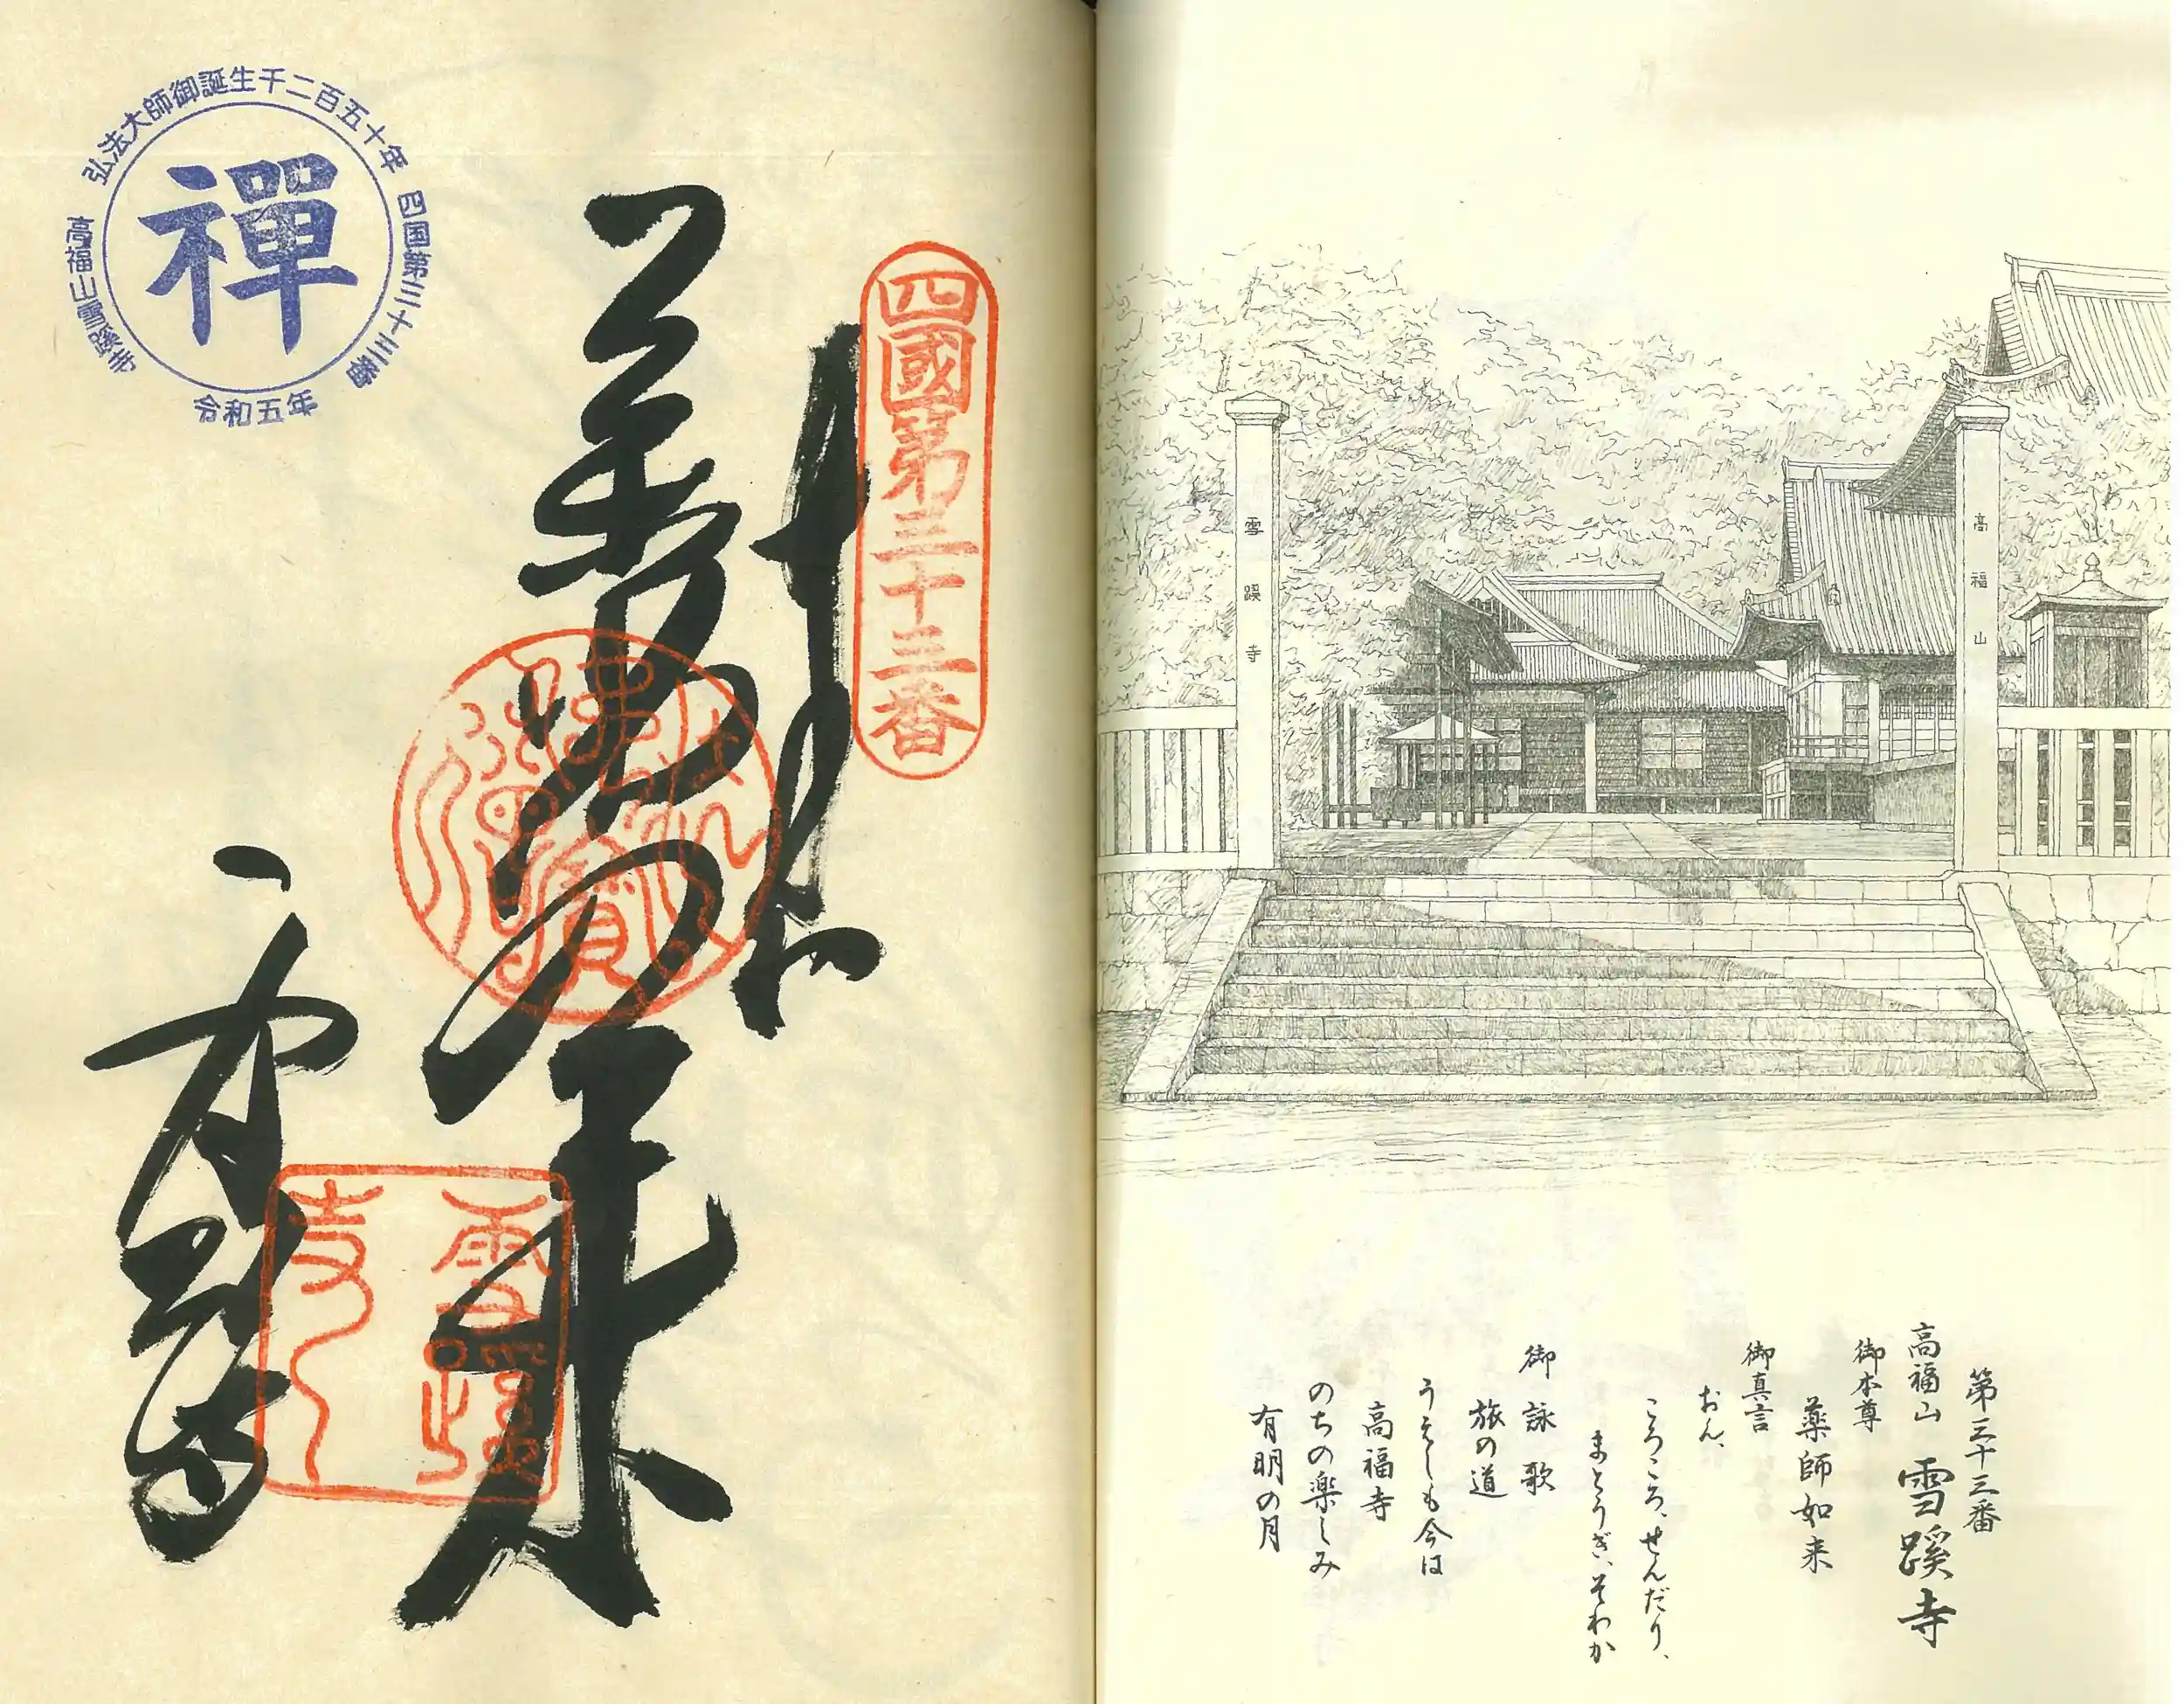 弘法大師御誕生千二百五十年
四国第三十三番
高福山雪蹊寺
令和五年
禪
四國第三十三番
奉納
薬師如来
雪蹊寺
雪蹊寺
高福山
雪蹊寺
第三十三番
高福山 雪蹊寺
御本尊
薬師如来
御真言
おん、
ころころ、せんだり、
まとうぎ、そわか
御詠歌
旅の道
うえしも今は
高福寺
のちの楽しみ
有明の月